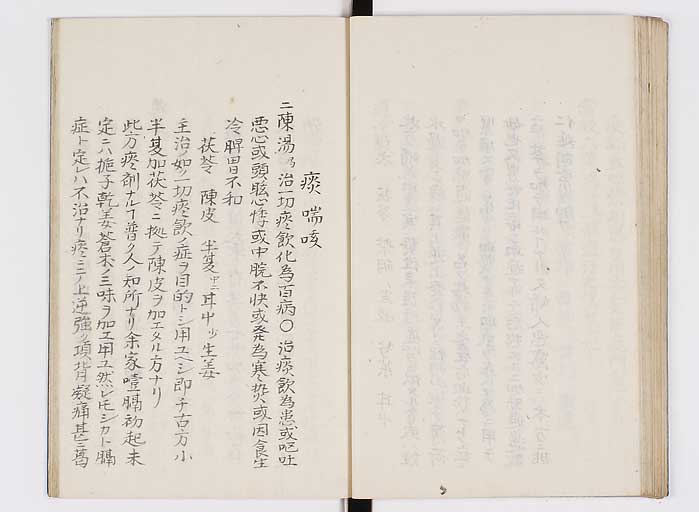 痰喘咳
二陳湯 治一切痰飲化為百病〇治痰飲為患或嘔吐
悪心或頭眩心悸或中脘不快或発為寒熱或因食生
冷脾胃不和
茯苓 陳皮 半夏 甘中 生姜
主治ノ如ク一切痰飲ノ症ヲ目的トシ用ユヘシ即チ古方小
半夏加茯苓ニ拠テ陳皮ヲ加エタル方ナリ
此方痰剤ニテ普ク人ノ知所ナリ余家噎膈初起未
定ニハ梔子乾姜蒼朮ノ三味ヲ加エ用ユ然レトモシカト膈
症ト定レハ不治ナリ痰ニテ上逆強ク項背凝痛甚ニ葛